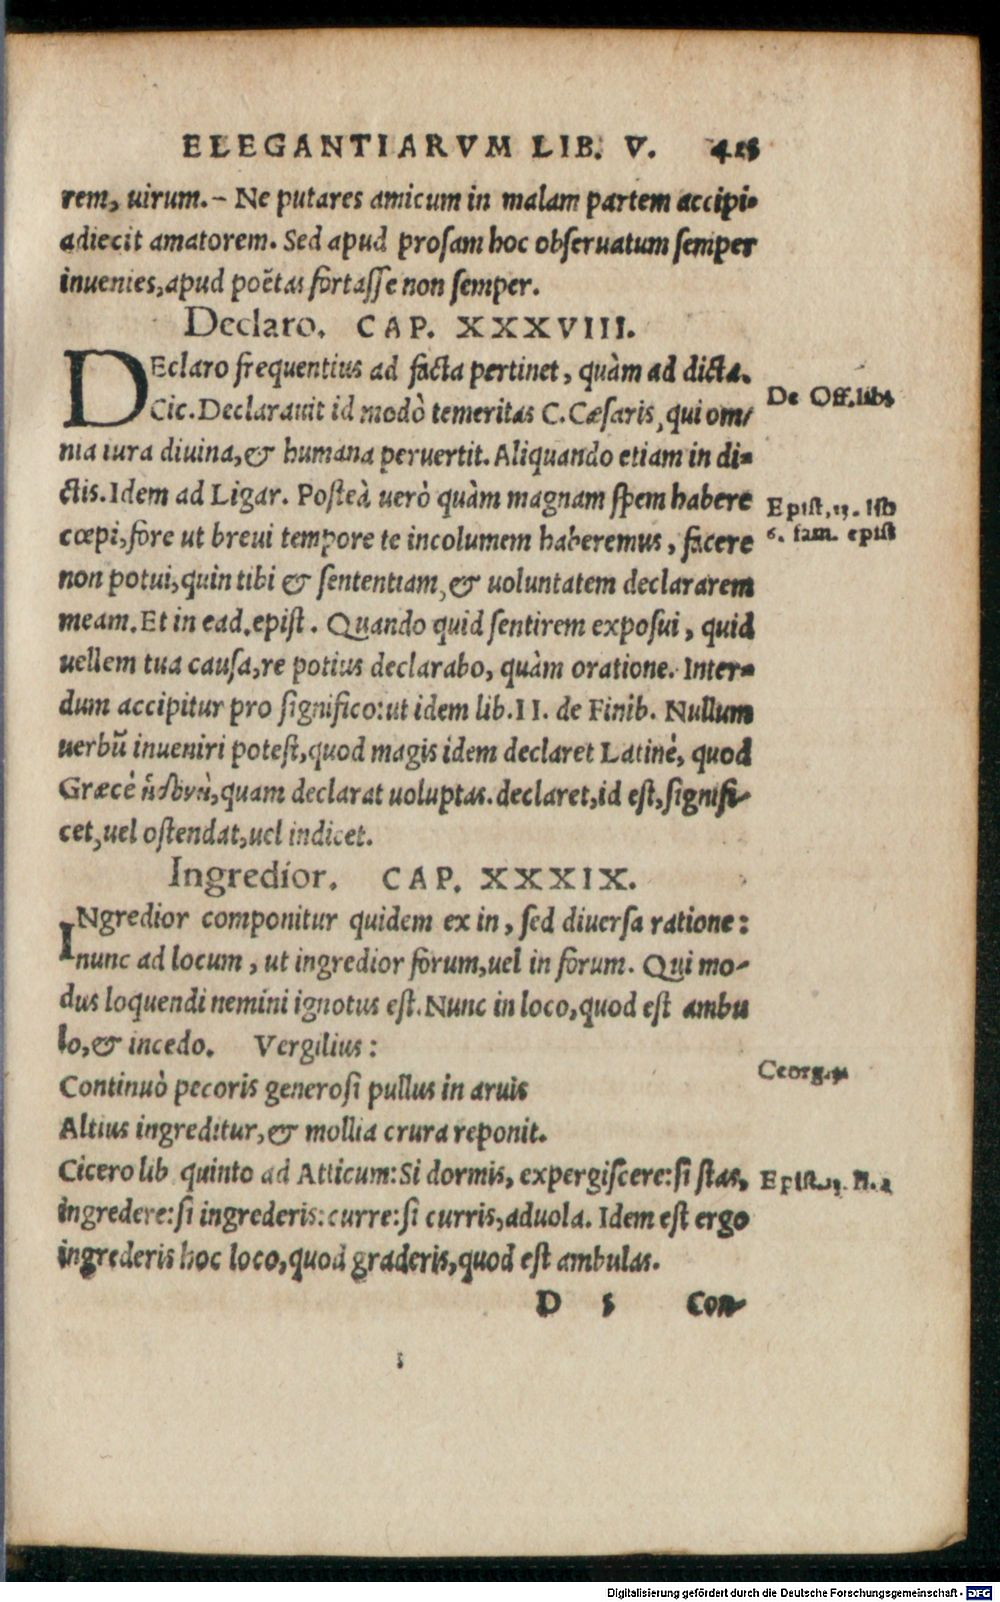 ELEGANTIARVM LIB. V. 425
rem, uirum. – Ne putares amicum in malam partem accipi,
adiecit amatorem. Sed apud prosam hoc obseruatum semper
inuenies, apud poëtas fortasse non semper.
Declaro. CAP. XXXVIII.
DEclaro frequentius ad facta pertinet, quàm ad dicta.
Cic. Declarauit id modò temeritas C. Cæsaris, qui om-
De Off. lib 1
nia iura diuina, & humana peruertit. Aliquando etiam in di-
ctis. Idem ad Ligar. Posteà uerò quàm magnam spem habere
Epist. 13. lib
cœpi, fore ut breui tempore te incolumem haberemus, facere
6. fam. epist
non potui, quin tibi & sententiam, & uoluntatem declararem
meam. Et in ead. epist. Quando quid sentirem exposui, quid
uellem tua causa, re potius declarabo, quàm oratione. Inter-
dum accipitur pro significo: ut idem lib. II. de Finib. Nullum
uerbũ inueniri potest, quod magis idem declaret Latinè, quod
Græcè ἡδονὴ, quam declarat uoluptas. declaret, id est, signifi-
cet, uel ostendat, uel indicet.
Ingredior. CAP. XXXIX.
INgredior componitur quidem ex in, sed diuersa ratione:
nunc ad locum, ut ingredior forum, uel in forum. Qui mo-
dus loquendi nemini ignotus est. Nunc in loco, quod est ambu
lo, & incedo. Vergilius:
Georg.
Continuò pecoris generosi pullus in aruis
Altius ingreditur, & mollia crura reponit.
Cicero lib quinto ad Atticum: Si dormis, expergiscere: si stas,
Epist.
ingredere: si ingrederis: curre: si curris, aduola. Idem est ergo
ingrederis hoc loco, quod graderis, quod est ambulas.
D 5 Con-
Digitalisierung gefördert durch die Deutsche Forschungsgemeinschaft - DFG